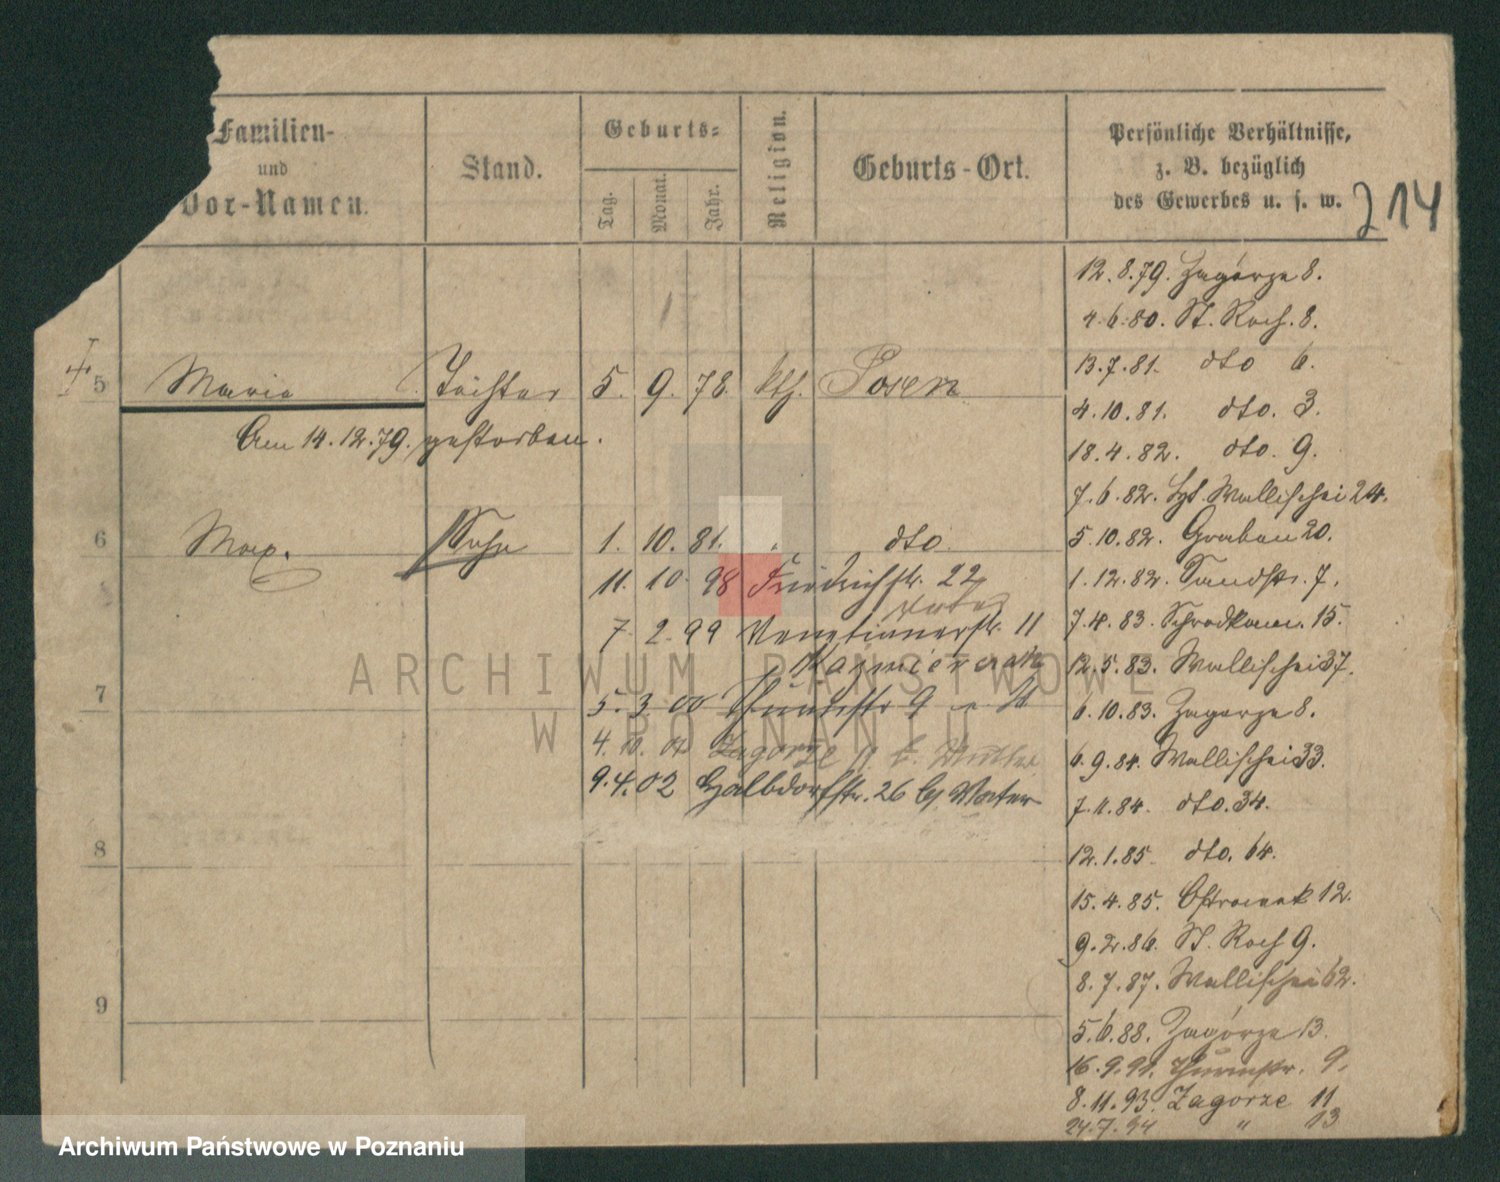 Familien-
und
Vor-Namen.
Stand.
Geburts-
Tag.
Monat.
Jahr.
Religion.
Geburts-Ort.
Persönliche Verhältnisse,
z. B. bezüglich
des Gewerbes u. s. w.
214
12.8.79. Zagórze 8.
4.6.80. St. Roch. 8.
13.7.81. dto 6.
5 Maria Tochter 5. 9. 78. kth. Posen
4.10.81. dto. 3.
Am 14.12.79. gestorben.
18.4.82. dto. 9.
7.6.82. Wallischei 24.
6 Max. Sohn 1. 10. 81. " dto
5.10.82. Graben 20.
11. 10. 98 Friedrichstr. 22
1.12.82. Sandstr. 7.
Vater
7. 2. 99 Venetianerstr. 11
7.4.83. Schrodkam. 15.
Kazmierczak
12.5.83. Wallischei 37.
7
5. 3. 00 Thurmstr 9
6.10.83. Zagorze 8.
4. 10. 01 Zagorze 11 b. Mutter
6.9.84. Wallischei 33.
9.4.02 Halbdorfstr. 26 b/ Vater
7.11.84. dto. 34.
8
12.1.85. dto. 64.
15.4.85. Ostrowek 12.
9.2.86. St. Roch 9.
8.7.87. Wallischei 62.
9
5.6.88. Zagórze 13.
16.9.91. Thurmstr. 9.
8.11.93. Zagorze 11
24.7.94 " 13
ARCHIWUM PAŃSTWOWE
W POZNANIU
Archiwum Państwowe w Poznaniu